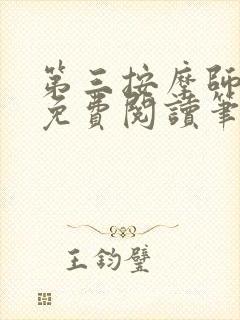 第三按摩師
免費閱讀筆
王鈞璧